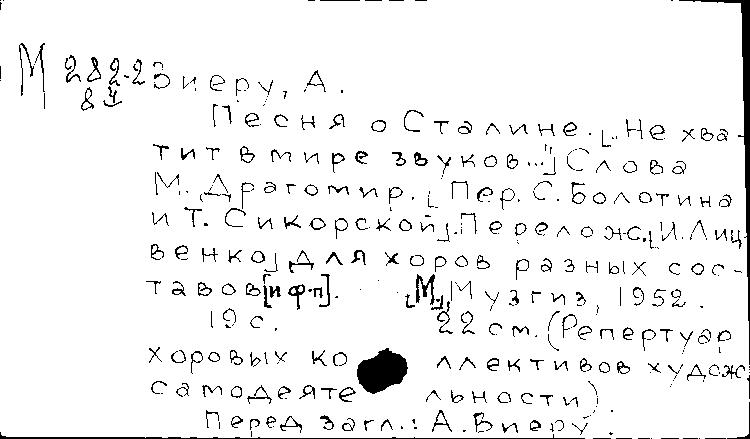 М 282-2 Виеру, А.
8
Песня о Сталине. [„Не хва-
тит в мире звуков..."] Слова
М. Драгомир. [Пер. С. Болотина
и Т. Сикорской]. Перелож. [И. Лиц-
венко] для хоров разных сос-
тавов [и ф-п]. [М.], Музгиз, 1952.
19 с. 22 см. (Репертуар
хоровых ко ллективов худож.
самодеяте льности)
Перед загл.: А. Виеру.